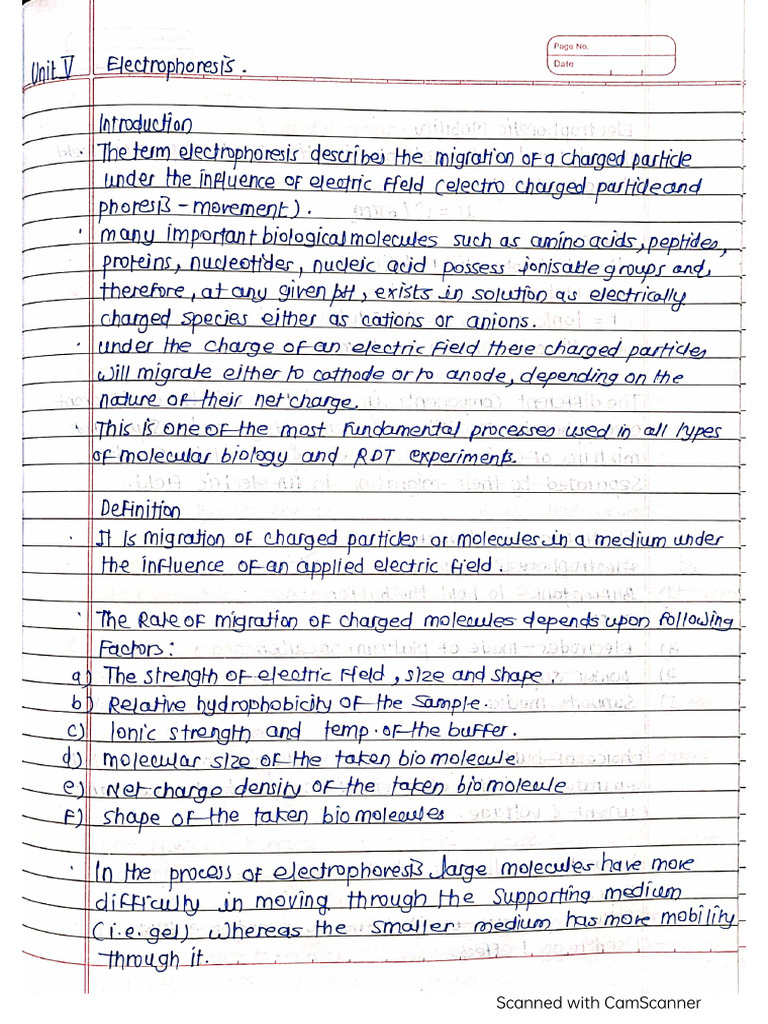 Page No.
Date
Unit V Electrophoresis.
Introduction
· The term electrophoresis describes the migration of a charged particle
under the influence of electric field (electro charged particle and
phoresis - movement).
· many important biological molecules such as amino acids, peptides,
proteins, nucleotides, nucleic acid possess ionisable groups and,
therefore, at any given pH, exists in solution as electrically
charged species either as cations or anions.
· under the charge of an electric field these charged particles
will migrate either to cathode or to anode, depending on the
nature of their net charge.
· This is one of the most fundamental processes used in all types
of molecular biology and RDT experiments.
Definition
· It is migration of charged particles or molecules in a medium under
the influence of an applied electric field.
· The Rate of migration of charged molecules depends upon following
Factors:
a) The strength of electric field, size and shape.
b) Relative hydrophobicity of the sample.
c) Ionic strength and temp. of the buffer.
d) molecular size of the taken bio molecule
e) Net charge density of the taken biomolecule
F) shape of the taken bio molecules
· In the process of electrophoresis large molecules have more
difficulty in moving through the supporting medium
(i.e. gel) whereas the smaller medium has more mobility
through it.
Scanned with CamScanner